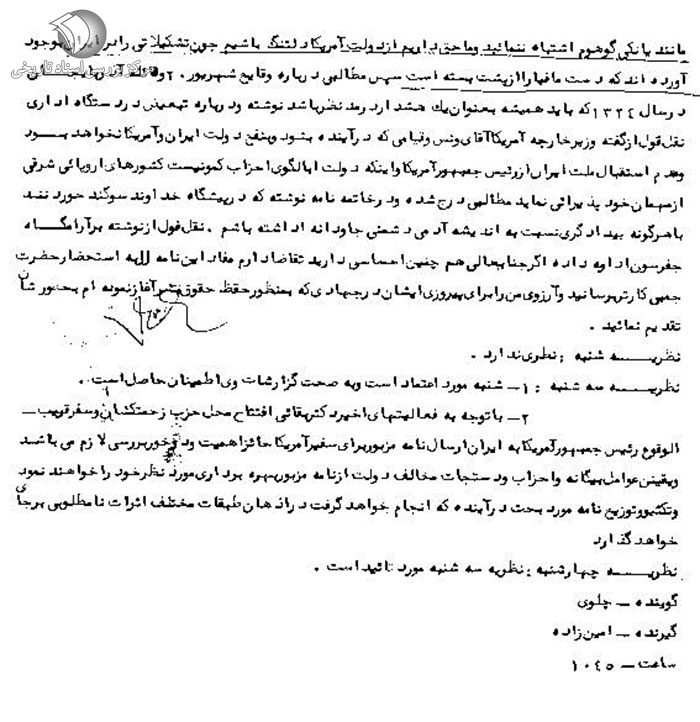 مرکز بررسی اسناد تاریخی
مانند یانکی گوهوم اشتباه ننمائید وماحق داریم ازدولت آمریکا دلتنگ باشیم چون تشکیلاتی را در ایران بوجود
آورده اندکه دست مافیاراازپشت بسته است سپس مطالبی درباره وقایع شهریور ۲۰ وقائله آذربایجان
درسال ۱۳۲۴که باید همیشه بعنوان یك هشدار مدنظرباشد نوشته ودرباره تبعیض دردستگاه اداری
نقل قول ازگفته وزیرخارجه آمریکاآقای ونس وقیامی که درآینده بشود وبنفع دولت ایران وآمریکانخواهد بود
وعدم استقبال ملت ایران ازرئیس جمهورآمریکا واینکه دولت ایالگوی احزاب کمونیست کشورهای اروپائی شرقی
ازمهمان خود پذیرائی نماید مطالبی درج شده ودرخاتمه نامه نوشته که درپیشگاه خداوند سوگند خورده
باهرگونه بیدادگری نسبت به اندیشه آدمی دشمنی جاودانه داشته باشم . نقل قول ازنوشته برآرامگاه
جفرسون ادامه داده اگرجنابعالی هم چنین احساسی دارید تقاضادارم مفاد این نامه را به استحضار حضرت
جیمی کارتربرسانید وآرزوی من رابرای پیروزی ایشان درجهادی که بمنظورحفظ حقوق بشر آغازنموده ام بحضورشان
تقدیم نمائید .
نظریـــه شنبه : نظری ندارد .
نظریـــه سه شنبه : ۱ــ شنبه مورد اعتماد است وبه صحت گزارشات وی اطمینان حاصل است .
۲ــ باتوجه به فعالیتهای اخیر دکتربقائی افتتاح محل حزب زحمتکشان وسفرقریب ــ
الوقوع رئیس جمهورآمریکابه ایران ارسال نامه مزبوربرای سفیرآمریکا حائزاهمیت ودرخوربررسی لازم می باشد
ویقینن عوامل بیگانه واحزاب ودستجات مخالف دولت ازنامه مزبوربهره برداری مورد نظرخود راخواهند نمود
وتکثیروتوزیع نامه مورد بحث درآینده که انجام خواهدگرفت دراذهان طبقات مختلف اثرات نامطلوبی برجای
خواهد گذارد
نظریـــه چهارشنبه : نظریه سه شنبه مورد تائید است .
گوینده ــ چلوی
گیرنده ــ امین زاده
ساعت ــ ۱۰۴۵